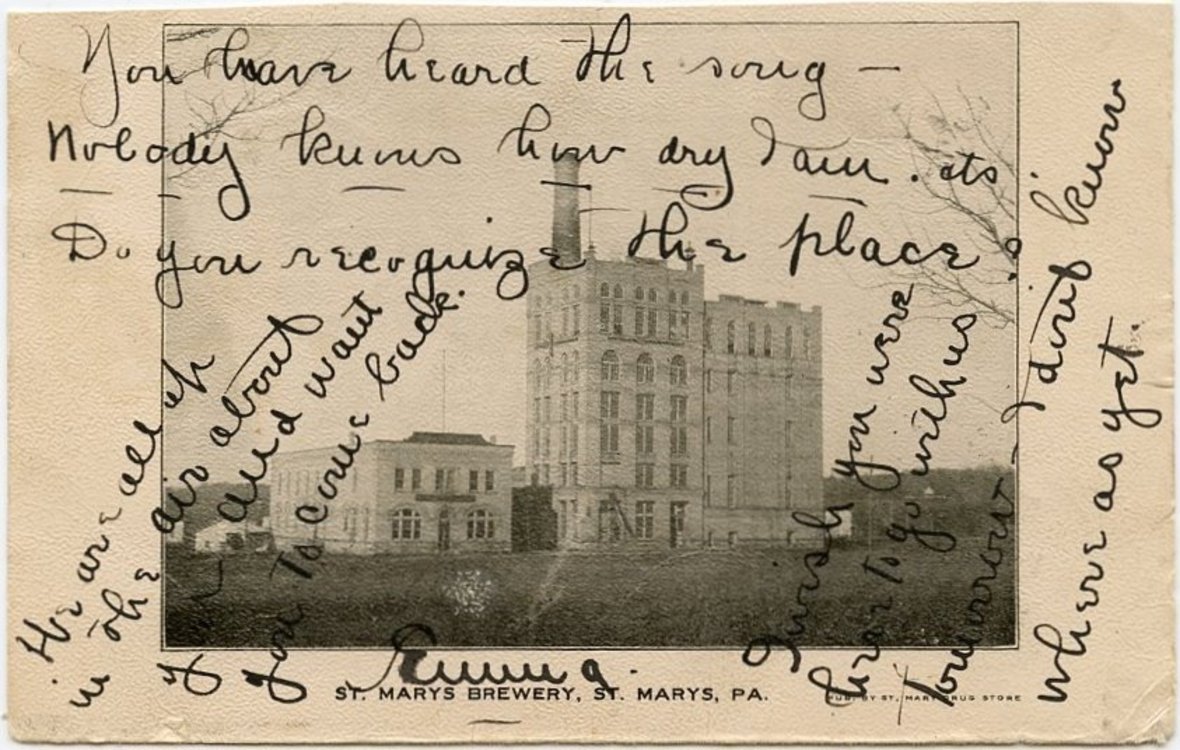 You have heard the song —
Nobody knows how dry I am. its
Do you recognize the place?
We are all up
in the air about
you and want
you to come back.
Emma.
I wish you were
here to go with us
tomorrow — I don't know
where as yet.
ST. MARYS BREWERY, ST. MARYS, PA.
PUB. BY ST. MARYS DRUG STORE